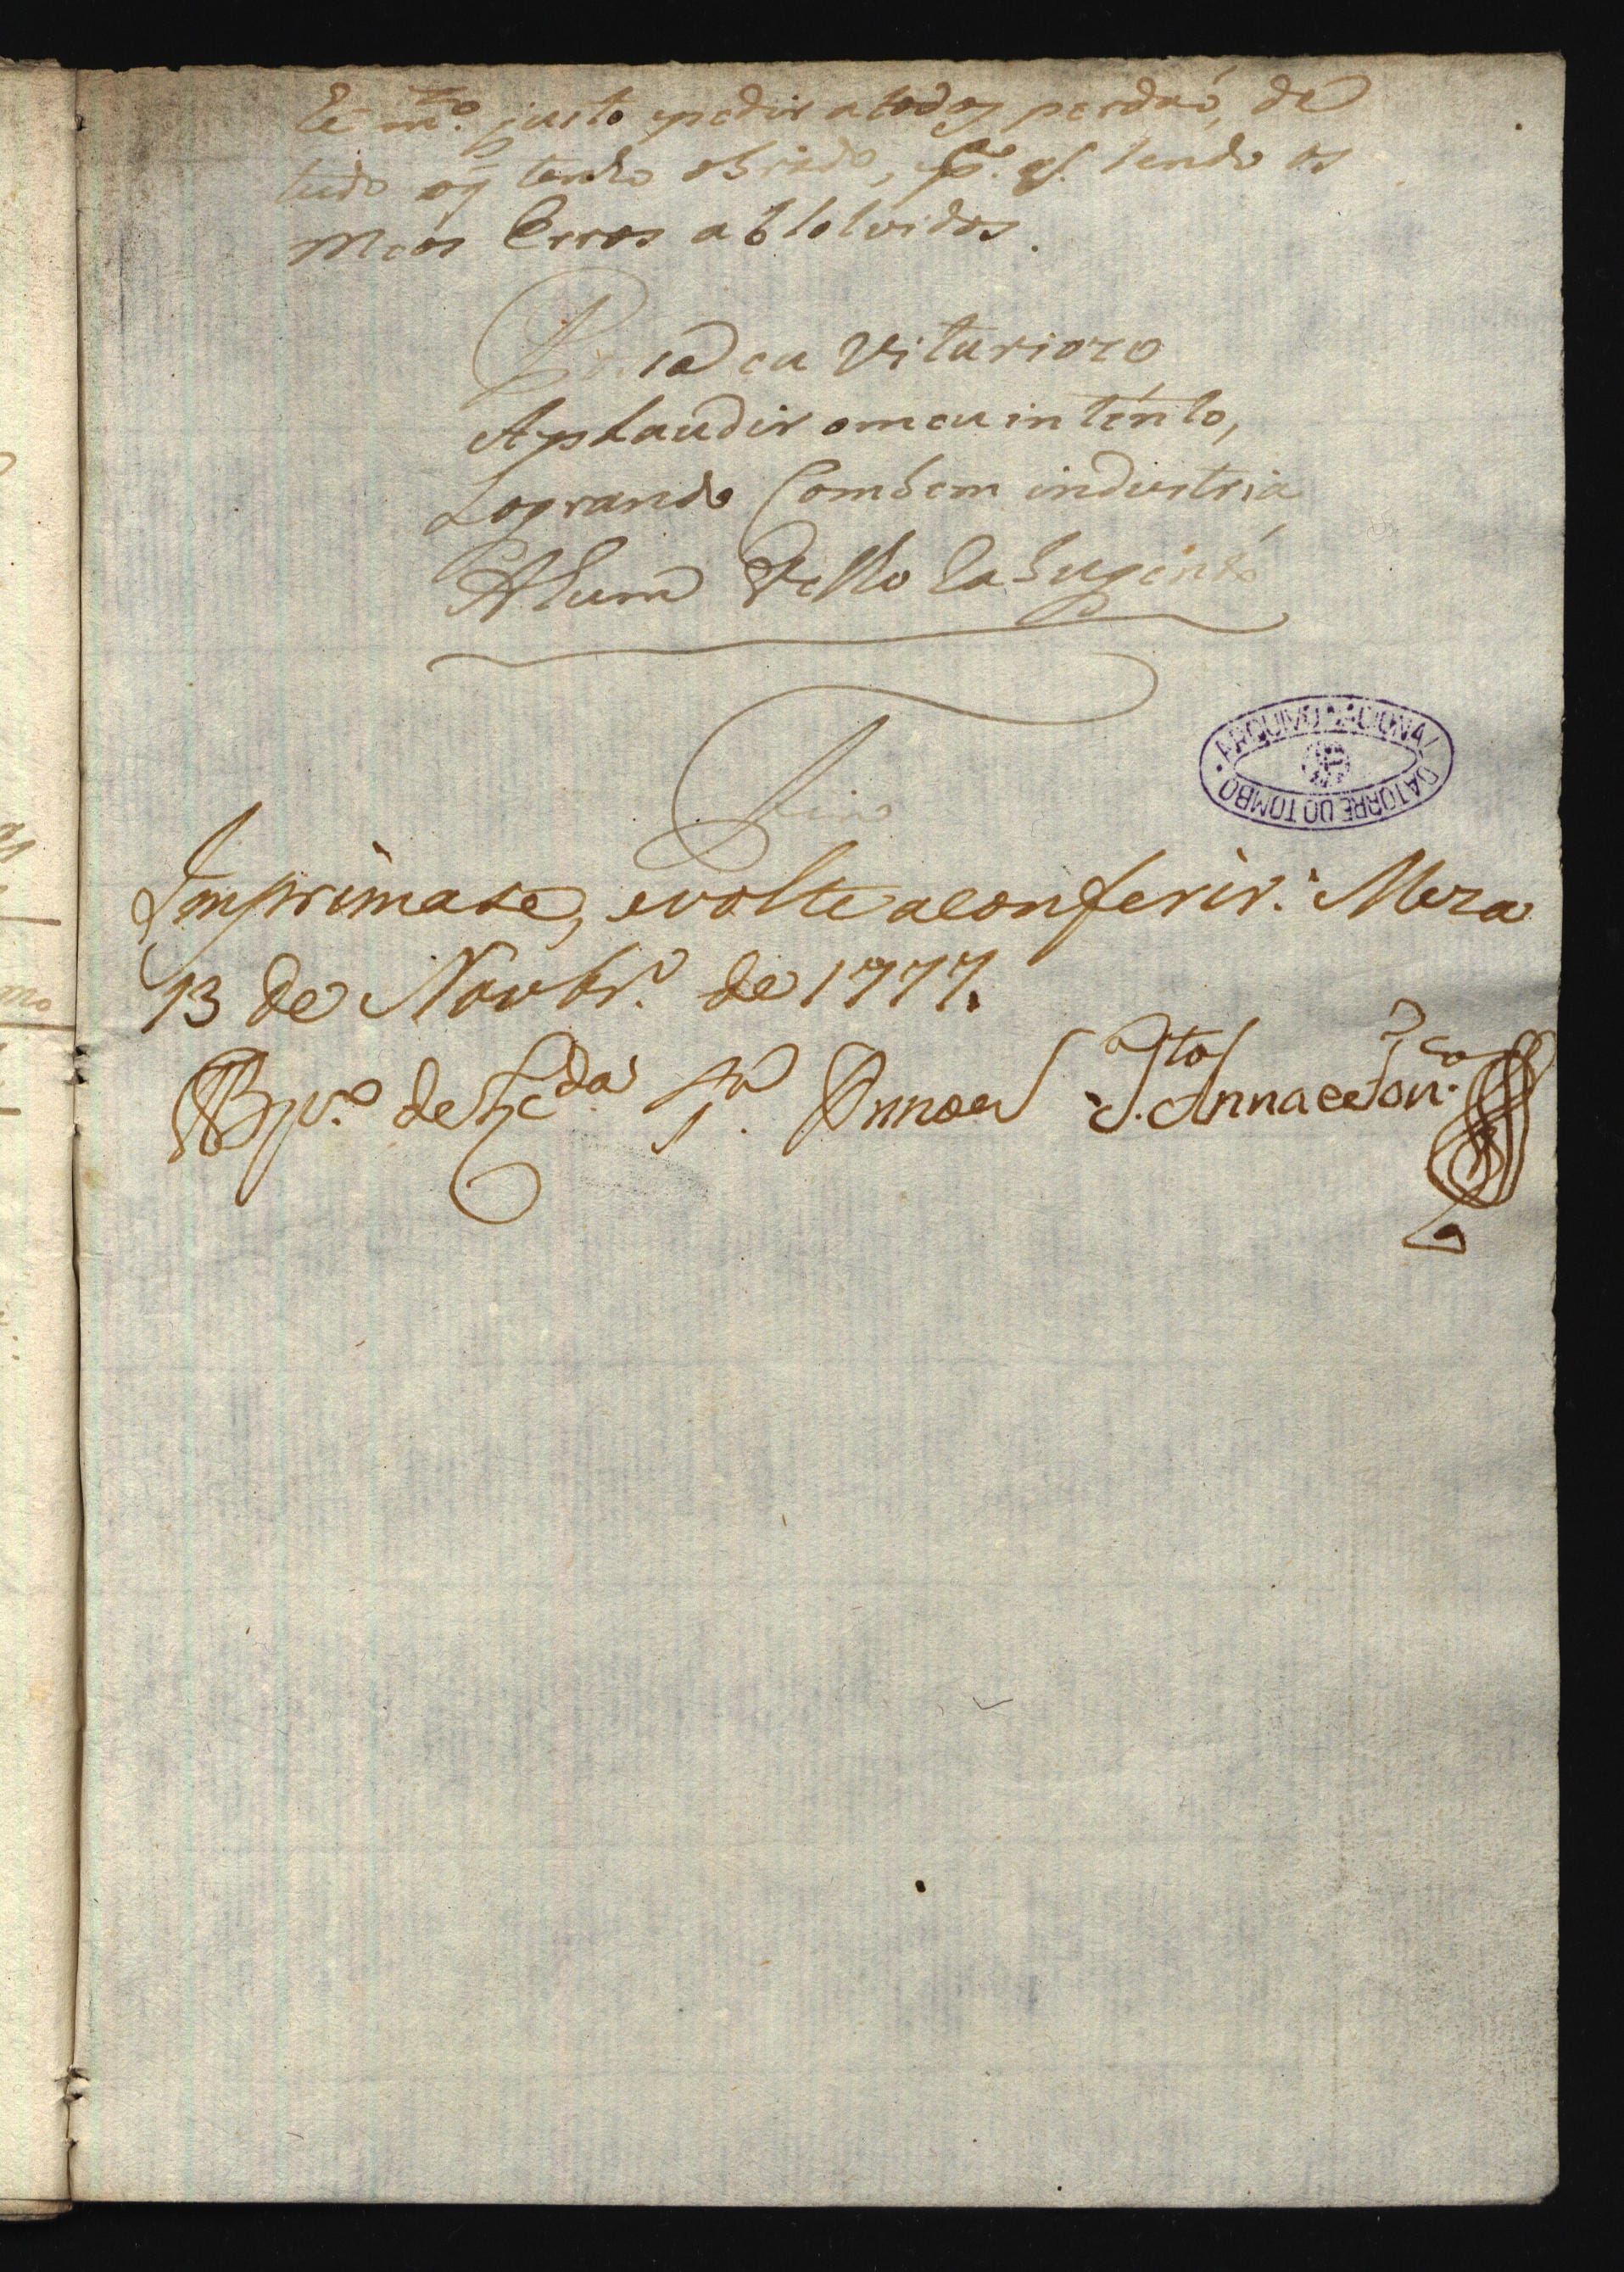 Hé m.to justo pedir a todos perdaõ, de
tudo o q̃ tenho obrado, p.a q. sendo os
meos Erros abSolvidos.
ja eu Vituriozo
Aplaudir o meu intento,
Logrando Com bem industria
A hum Velho laBugento
Fim
Imprimase, e volte a conferir. Meza
13 de Novbr.o de 1777.
Bp.o de S.ta Anna e Fon.ca
ARQUIVO NACIONAL DA TORRE DO TOMBO